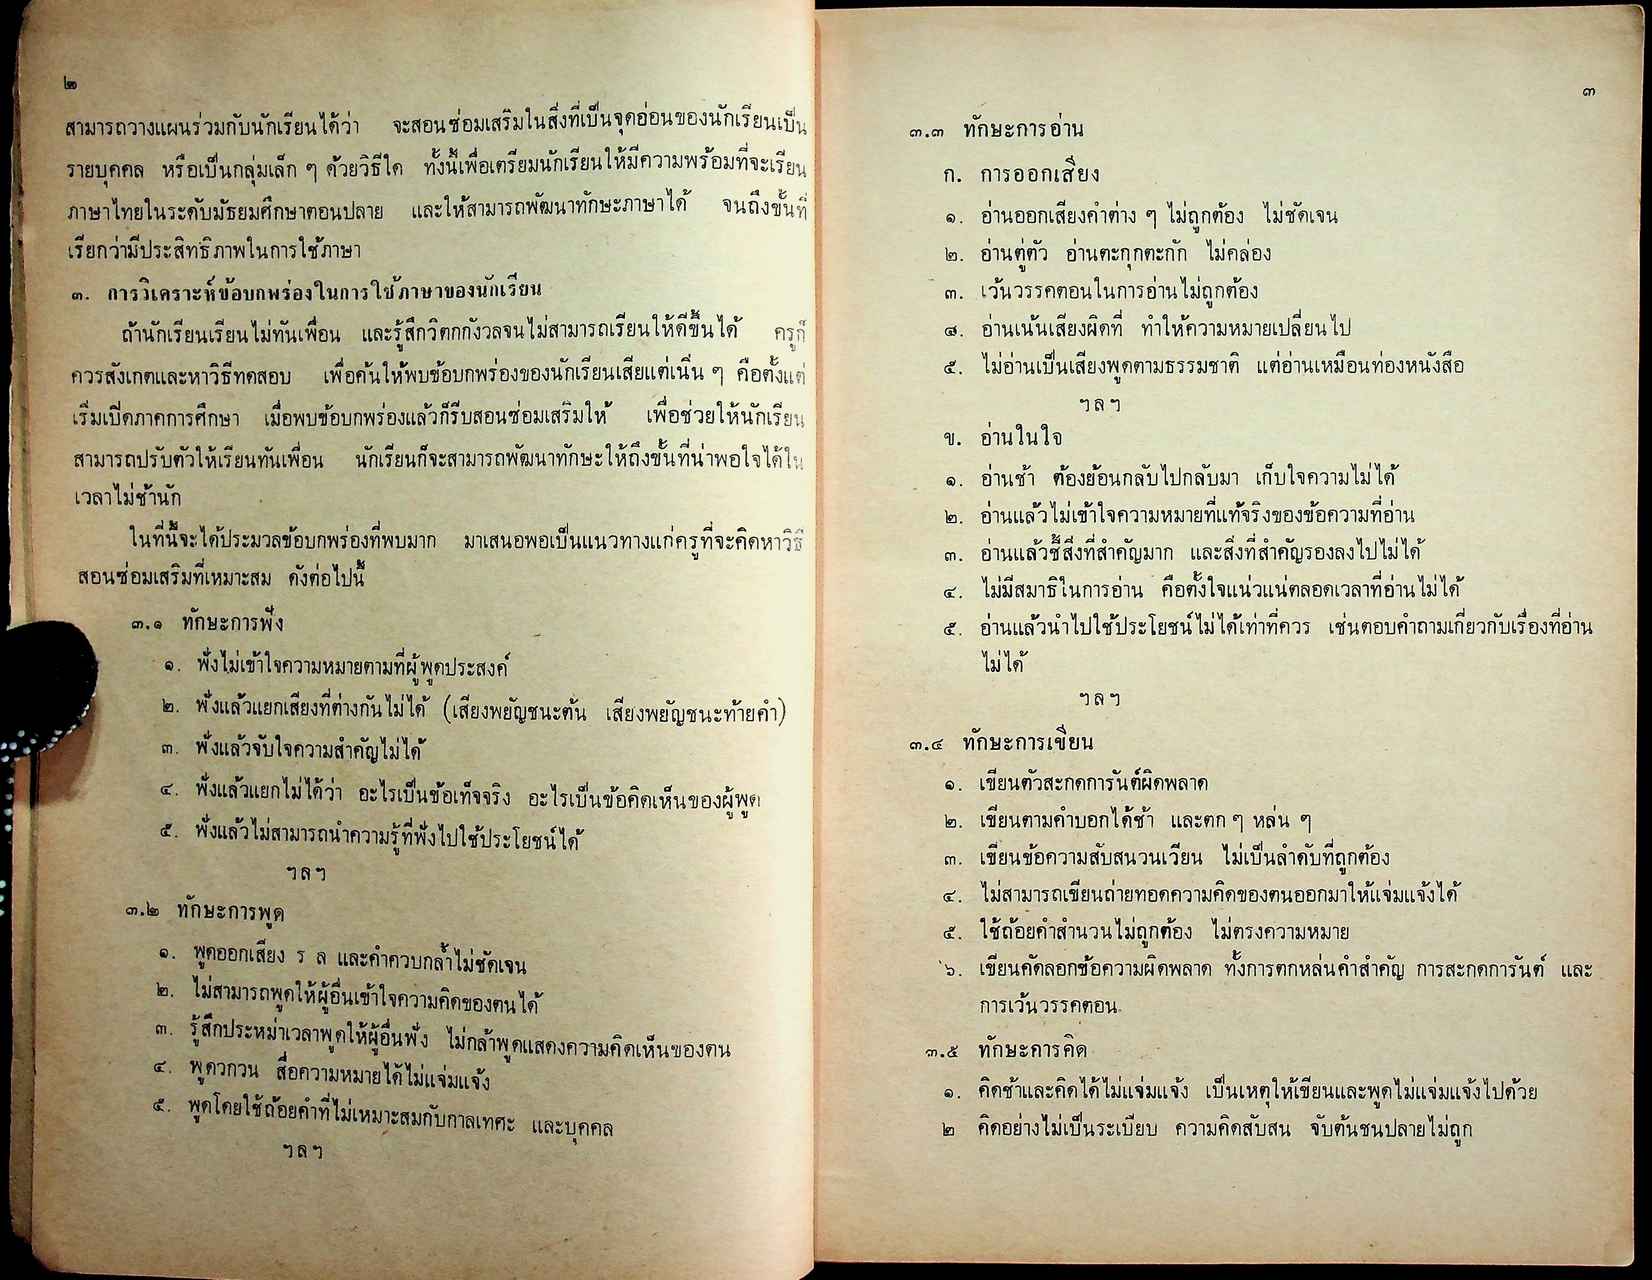 ๒
สามารถวางแผนร่วมกับนักเรียนได้ว่า จะสอนซ่อมเสริมในสิ่งที่เป็นจุดอ่อนของนักเรียนเป็น
รายบุคคล หรือเป็นกลุ่มเล็ก ๆ ด้วยวิธีใด ทั้งนี้เพื่อเตรียมนักเรียนให้มีความพร้อมที่จะเรียน
ภาษาไทยในระดับมัธยมศึกษาตอนปลาย และให้สามารถพัฒนาทักษะภาษาได้ จนถึงขั้นที่
เรียกว่ามีประสิทธิภาพในการใช้ภาษา
๓. การวิเคราะห์ข้อบกพร่องในการใช้ภาษาของนักเรียน
ถ้านักเรียนเรียนไม่ทันเพื่อน และรู้สึกวิตกกังวลจนไม่สามารถเรียนให้ดีขึ้นได้ ครูก็
ควรสังเกตและหาวิธีทดสอบ เพื่อค้นให้พบข้อบกพร่องของนักเรียนเสียแต่เนิ่น ๆ คือตั้งแต่
เริ่มเปิดภาคการศึกษา เมื่อพบข้อบกพร่องแล้วก็รีบสอนซ่อมเสริมให้ เพื่อช่วยให้นักเรียน
สามารถปรับตัวให้เรียนทันเพื่อน นักเรียนก็จะสามารถพัฒนาทักษะให้ถึงขั้นที่น่าพอใจได้ใน
เวลาไม่ช้านัก
ในที่นี้จะได้ประมวลข้อบกพร่องที่พบมาก มาเสนอพอเป็นแนวทางแก่ครูที่จะคิดหาวิธี
สอนซ่อมเสริมที่เหมาะสม ดังต่อไปนี้
๓.๑ ทักษะการฟัง
๑. ฟังไม่เข้าใจความหมายตามที่ผู้พูดประสงค์
๒. ฟังแล้วแยกเสียงที่ต่างกันไม่ได้ (เสียงพยัญชนะต้น เสียงพยัญชนะท้ายคำ)
๓. ฟังแล้วจับใจความสำคัญไม่ได้
๔. ฟังแล้วแยกไม่ได้ว่า อะไรเป็นข้อเท็จจริง อะไรเป็นข้อคิดเห็นของผู้พูด
๕. ฟังแล้วไม่สามารถนำความรู้ที่ฟังไปใช้ประโยชน์ได้
ฯลฯ
๓.๒ ทักษะการพูด
๑. พูดออกเสียง ร ล และคำควบกล้ำไม่ชัดเจน
๒. ไม่สามารถพูดให้ผู้อื่นเข้าใจความคิดของตนได้
๓. รู้สึกประหม่าเวลาพูดให้ผู้อื่นฟัง ไม่กล้าพูดแสดงความคิดเห็นของตน
๔. พูดวกวน สื่อความหมายได้ไม่แจ่มแจ้ง
๕. พูดโดยใช้ถ้อยคำที่ไม่เหมาะสมกับกาลเทศะ และบุคคล
ฯลฯ
๓
๓.๓ ทักษะการอ่าน
ก. การออกเสียง
๑. อ่านออกเสียงคำต่าง ๆ ไม่ถูกต้อง ไม่ชัดเจน
๒. อ่านตู่ตัว อ่านตะกุกตะกัก ไม่คล่อง
๓. เว้นวรรคตอนในการอ่านไม่ถูกต้อง
๔. อ่านเน้นเสียงผิดที่ ทำให้ความหมายเปลี่ยนไป
๕. ไม่อ่านเป็นเสียงพูดตามธรรมชาติ แต่อ่านเหมือนท่องหนังสือ
ฯลฯ
ข. อ่านในใจ
๑. อ่านช้า ต้องย้อนกลับไปกลับมา เก็บใจความไม่ได้
๒. อ่านแล้วไม่เข้าใจความหมายที่แท้จริงของข้อความที่อ่าน
๓. อ่านแล้วชี้สิ่งที่สำคัญมาก และสิ่งที่สำคัญรองลงไปไม่ได้
๔. ไม่มีสมาธิในการอ่าน คือตั้งใจแน่วแน่ตลอดเวลาที่อ่านไม่ได้
๕. อ่านแล้วนำไปใช้ประโยชน์ไม่ได้เท่าที่ควร เช่นตอบคำถามเกี่ยวกับเรื่องที่อ่าน
ไม่ได้
ฯลฯ
๓.๔ ทักษะการเขียน
๑. เขียนตัวสะกดการันต์ผิดพลาด
๒. เขียนตามคำบอกได้ช้า และตก ๆ หล่น ๆ
๓. เขียนข้อความสับสนวนเวียน ไม่เป็นลำดับที่ถูกต้อง
๔. ไม่สามารถเขียนถ่ายทอดความคิดของตนออกมาให้แจ่มแจ้งได้
๕. ใช้ถ้อยคำสำนวนไม่ถูกต้อง ไม่ตรงความหมาย
๖. เขียนคัดลอกข้อความผิดพลาด ทั้งการตกหล่นคำสำคัญ การสะกดการันต์ และ
การเว้นวรรคตอน
๓.๕ ทักษะการคิด
๑. คิดช้าและคิดได้ไม่แจ่มแจ้ง เป็นเหตุให้เขียนและพูดไม่แจ่มแจ้งไปด้วย
๒ คิดอย่างไม่เป็นระเบียบ ความคิดสับสน จับต้นชนปลายไม่ถูก